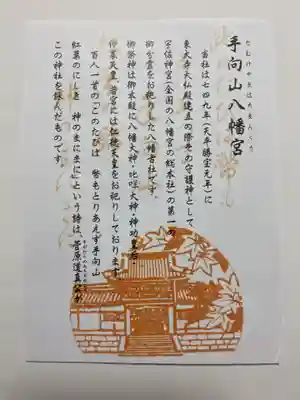 手向山八幡宮
たむけやまはちまんぐう
当社は七四九年（天平勝宝元年）に
東大寺大仏殿建立の際その守護神として
宇佐神宮（全国の八幡宮の総本社）の第一の
御分霊をお祀りした八幡古社です。
御祭神は御本殿に八幡大神・比咩大神・神功皇后・
仲哀天皇、若宮には仁徳天皇をお祀りしております。
百人一首の「このたびは　幣もとりあえず手向山
紅葉のにしき　神のまにまに」という詩は、菅原道真公が
この神社を詠んだものです。